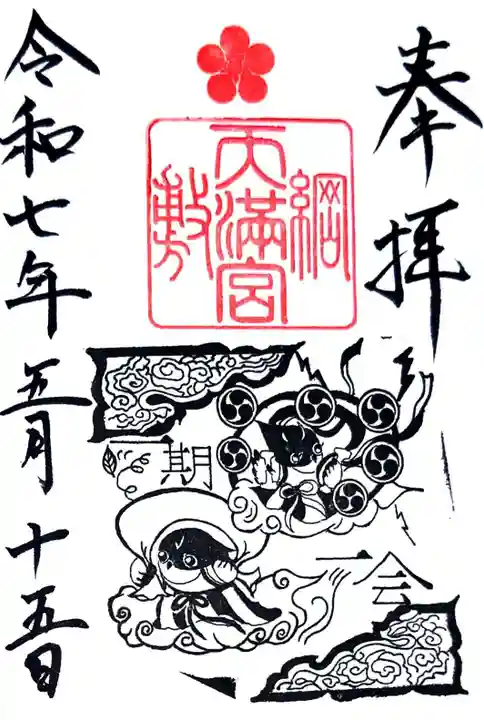 奉拝
綱敷
天満宮
一期
一会
令和七年五月十五日